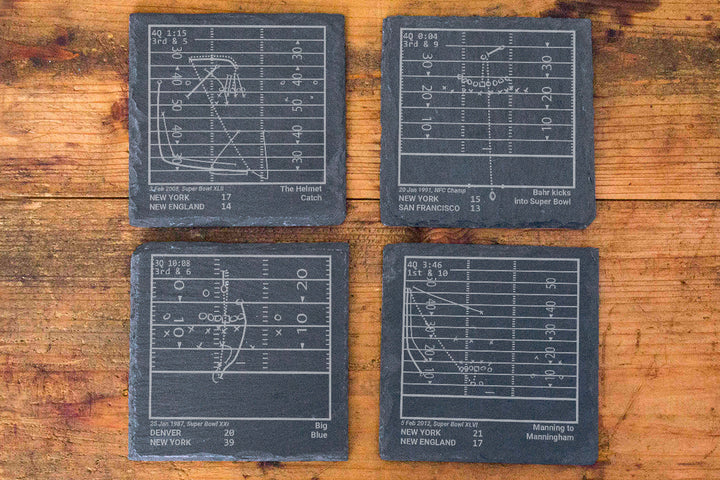 4Q 1:15
3rd & 5
30 30
40 40
50 50
40 40
30 30
3 Feb 2008, Super Bowl XLII
NEW YORK 17
NEW ENGLAND 14
The Helmet
Catch
4Q 0:04
3rd & 9
30 30
20 20
10 10
20 Jan 1991, NFC Champ
NEW YORK 15
SAN FRANCISCO 13
Bahr kicks
into Super Bowl
3Q 10:08
3rd & 6
20
10 10
25 Jan 1987, Super Bowl XXI
DENVER 20
NEW YORK 39
Big
Blue
4Q 3:46
1st & 10
50
40 40
30 30
20 20
10 10
5 Feb 2012, Super Bowl XLVI
NEW YORK 21
NEW ENGLAND 17
Manning to
Manningham